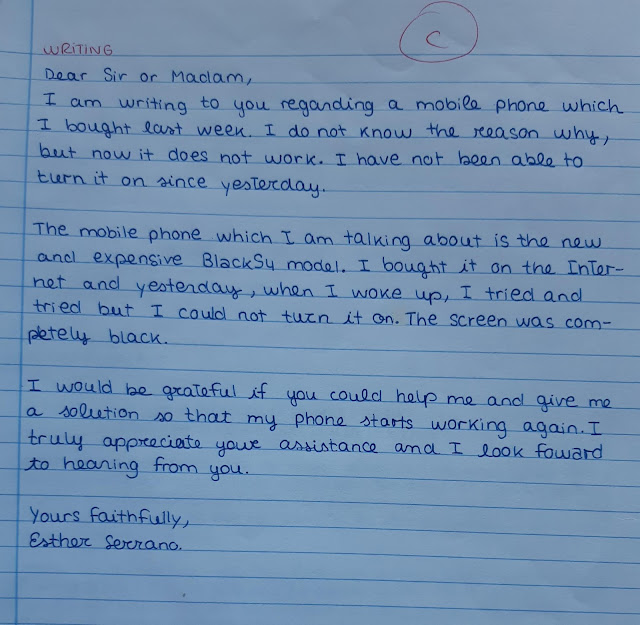 C
WRITING
Dear Sir or Madam,
I am writing to you regarding a mobile phone which
I bought last week. I do not know the reason why,
but now it does not work. I have not been able to
turn it on since yesterday.
The mobile phone which I am talking about is the new
and expensive BlackS4 model. I bought it on the Inter-
net and yesterday, when I woke up, I tried and
tried but I could not turn it on. The screen was com-
pletely black.
I would be grateful if you could help me and give me
a solution so that my phone starts working again. I
truly appreciate your assistance and I look foward
to hearing from you.
Yours faithfully,
Esther Serrano.